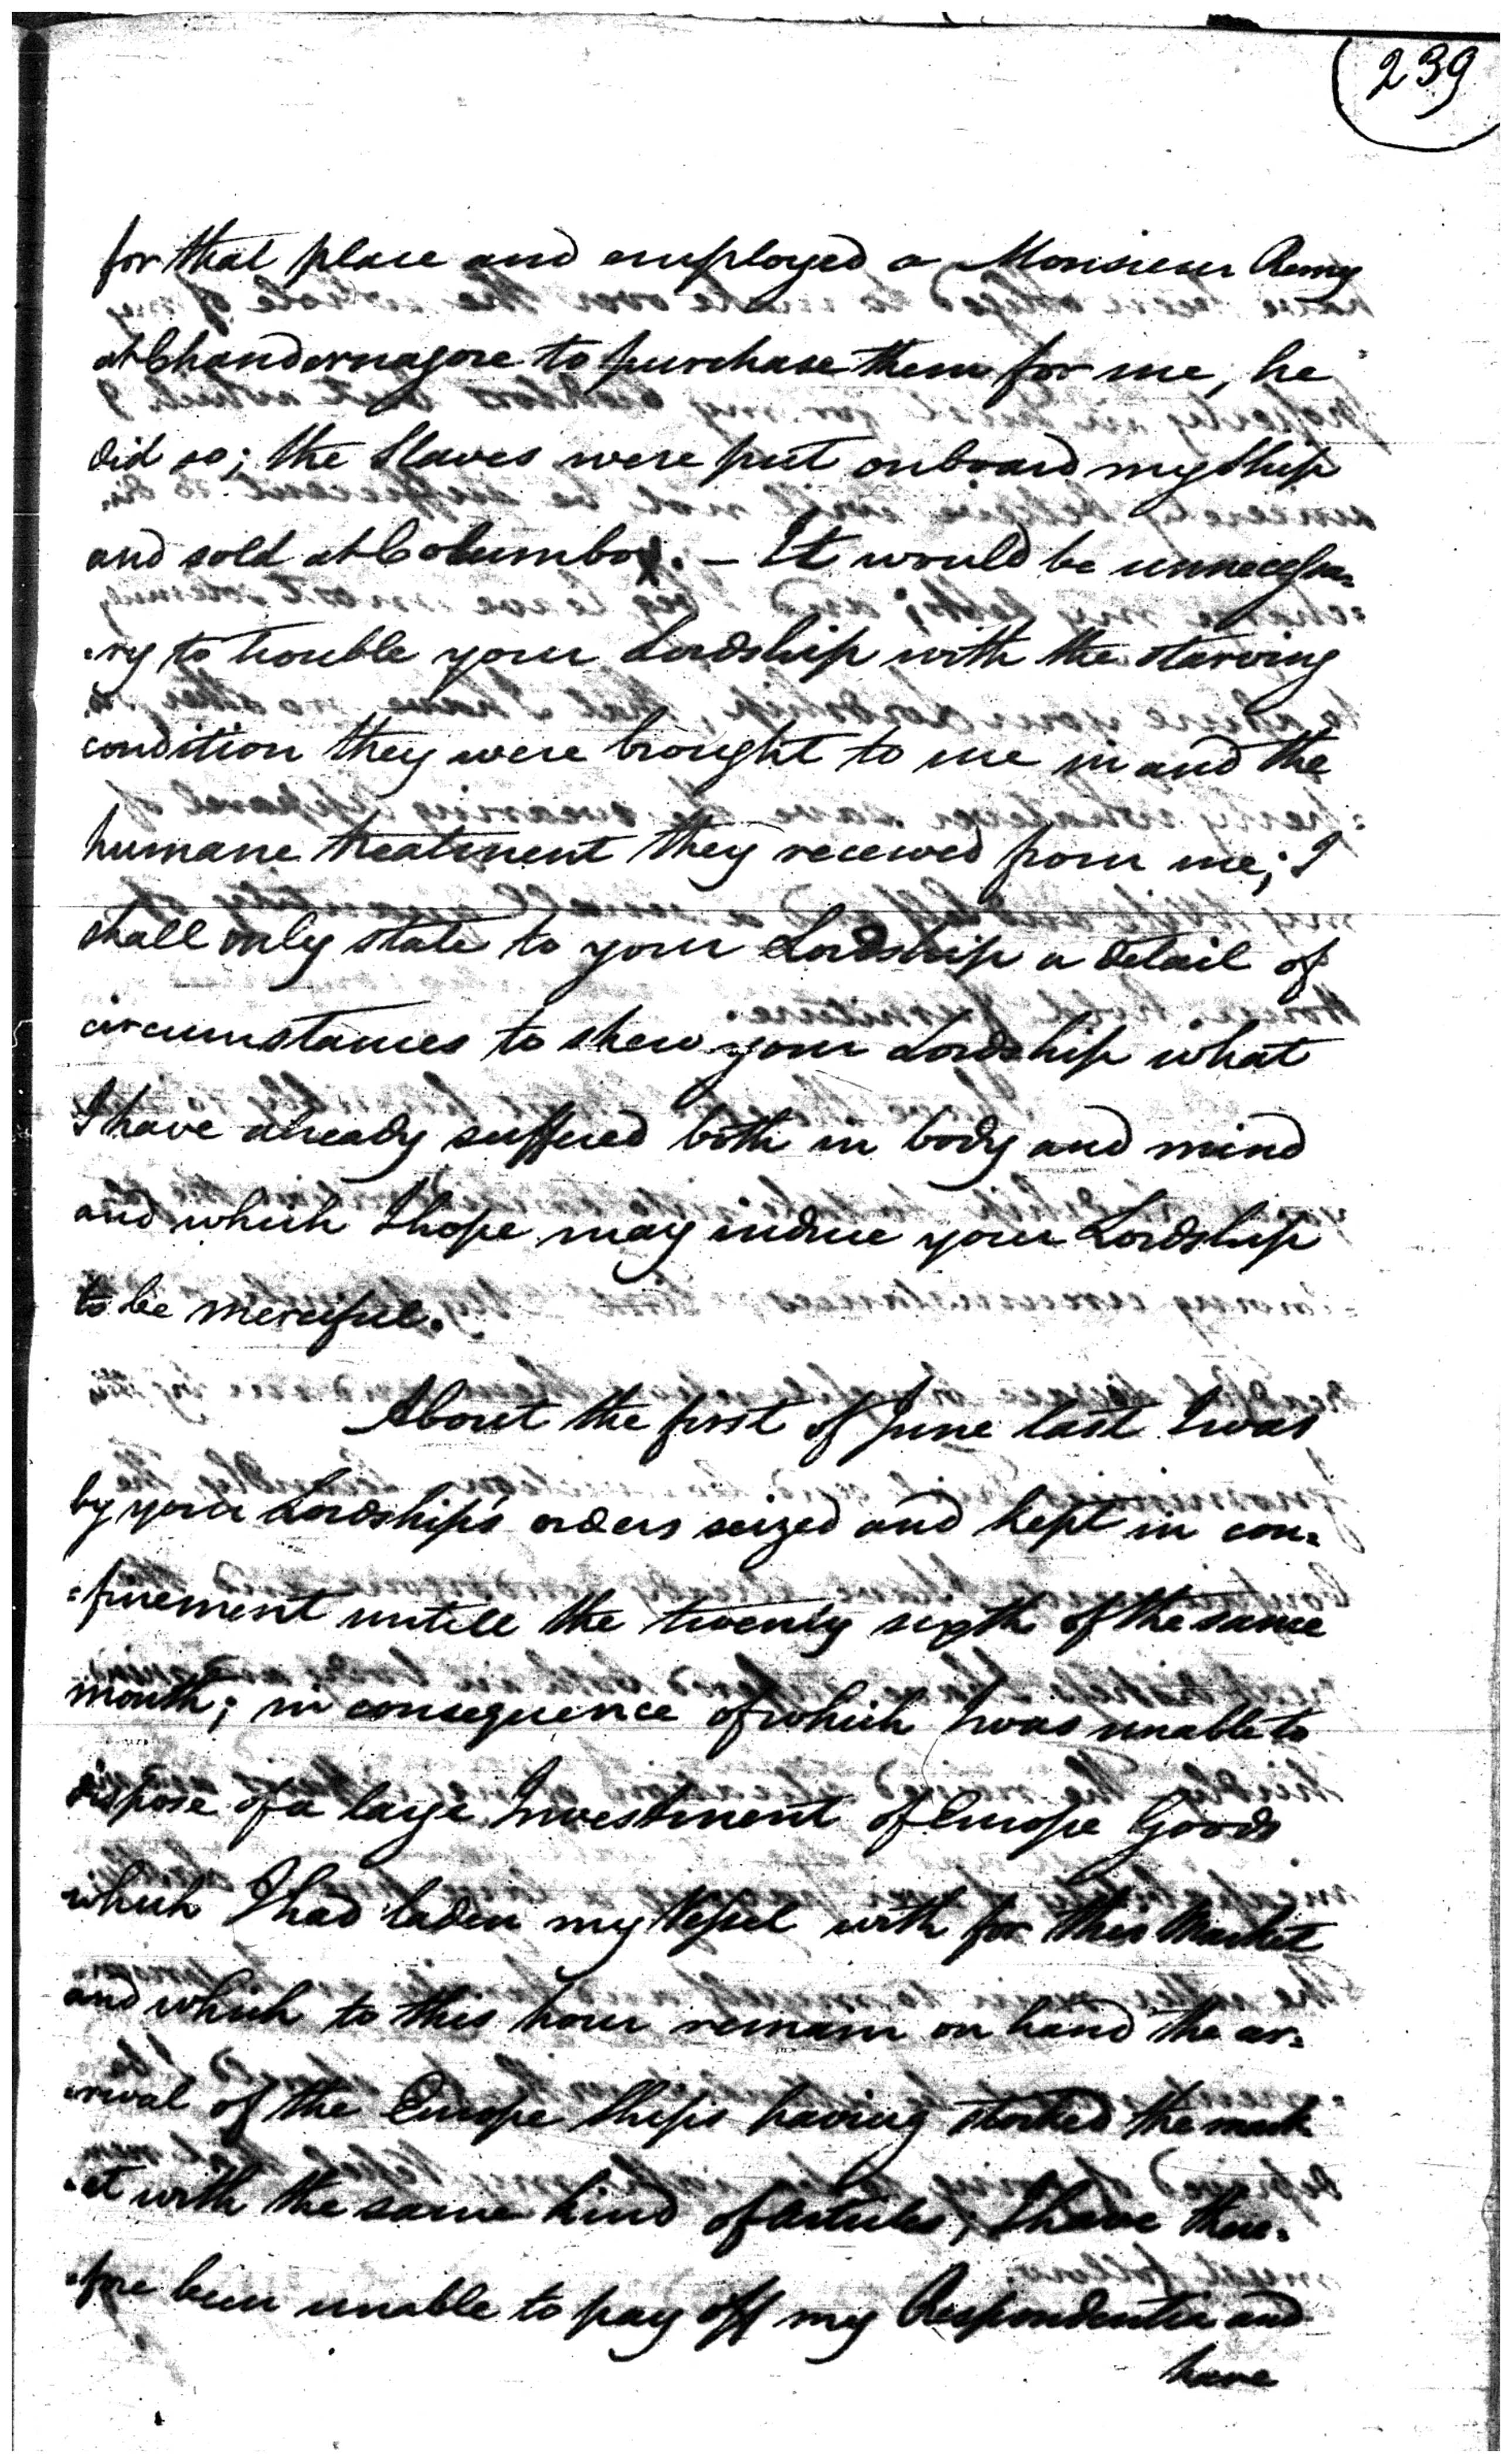 239
for that place and employed a Monsieur Remy
at Chandernagore to purchase them for me, he
did so; the Slaves were put onboard my Ship
and sold at Columbo. – It would be unnecessa=
=ry to trouble your Lordship with the starving
condition they were brought to me in and the
humane treatment they received from me; I
shall only state to your Lordship a detail of
circumstances to shew your Lordship what
I have already suffered both in body and mind
and which I hope may induce your Lordship
to be merciful.
About the first of June last I was
by your Lordship's orders seized and kept in con=
=finement untill the twenty sixth of the same
month; in consequence of which I was unable to
dispose of a large Investment of Europe Goods
which I had laden my Vessel with for this Market
and which to this hour remain on hand the ar=
=rival of the Europe Ships having stocked the mark
=et with the same kind of articles; I have there=
=fore been unable to pay off my Respondentia and
have